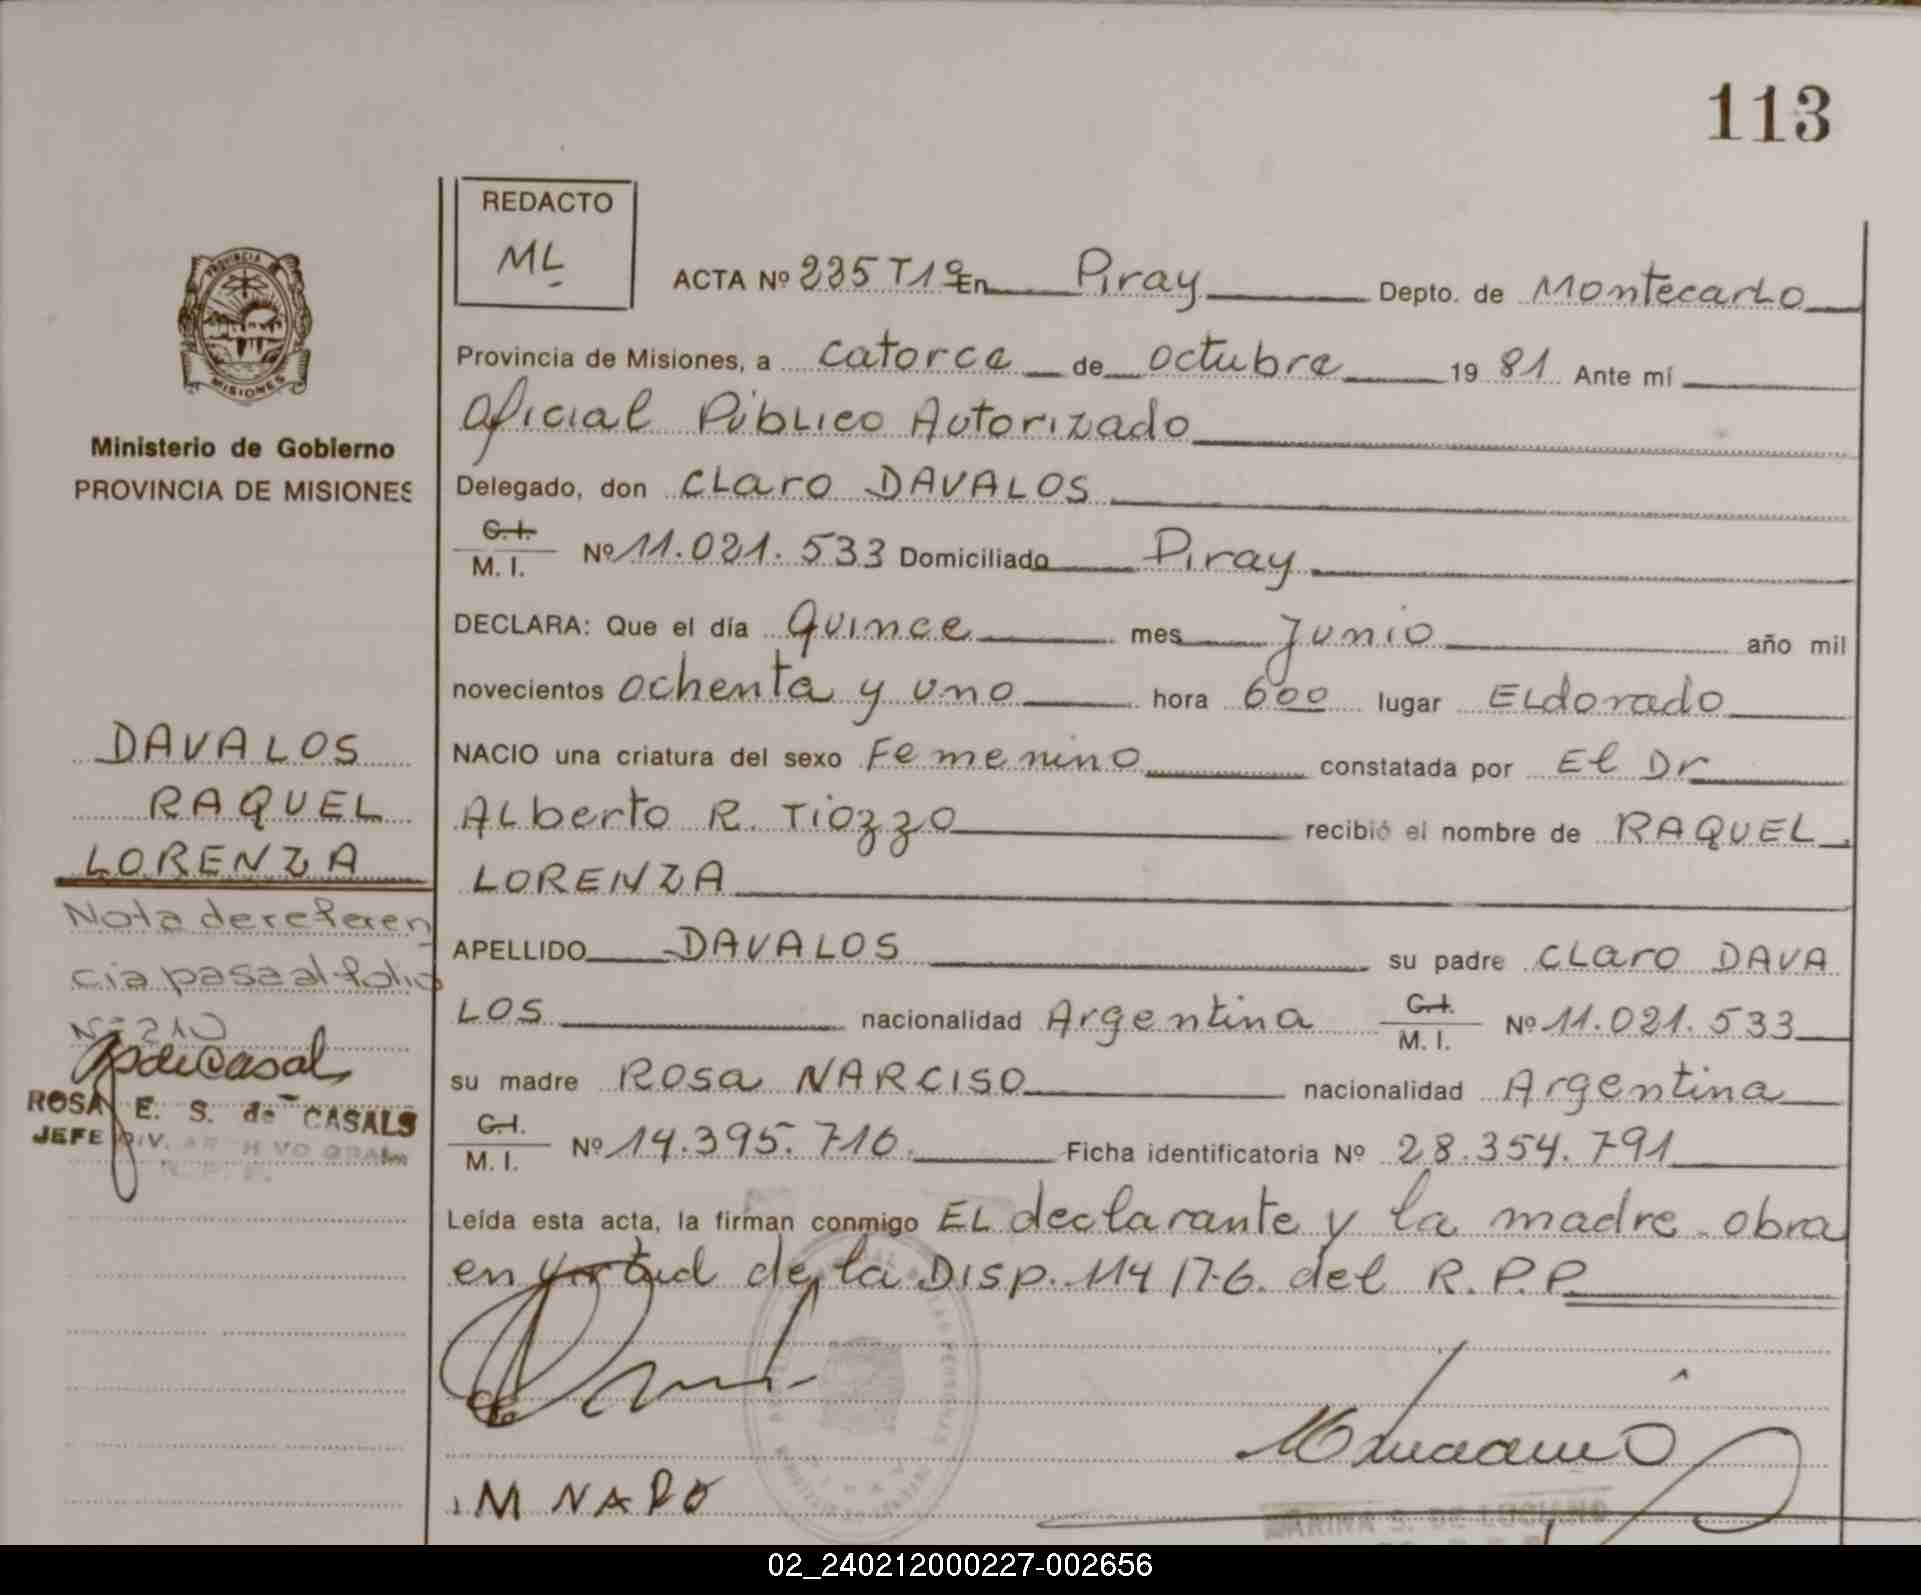 113
REDACTO
ML
PROVINCIA
MISIONES
Ministerio de Gobierno
PROVINCIA DE MISIONES
ACTA Nº 235 T1º En Piray Depto. de Montecarlo
Provincia de Misiones, a catorce de octubre 19 81 Ante mí
Oficial Público Autorizado
Delegado, don CLaro DAVALOS
C.I.
M. I. Nº 11.021.533 Domiciliado Piray
DECLARA: Que el día Quince mes Junio año mil
novecientos ochenta y uno hora 600 lugar ELdorado
NACIO una criatura del sexo Femenino constatada por El Dr
ALberto R. Tiozzo recibió el nombre de RAQUEL
LORENZA
APELLIDO DAVALOS su padre CLaro DAVA
LOS nacionalidad Argentina C.I. M. I. Nº 11.021.533
su madre Rosa NARCISO nacionalidad Argentina
C.I.
M. I. Nº 14.395.716 Ficha identificatoria Nº 28.354.791
Leída esta acta, la firman conmigo EL declarante y la madre. obra
en virtud de la Disp. 114/76. del R.P.P.
DAVALOS
RAQUEL
LORENZA
Nota de referen
cia pasa al folio
Nº 210
ROSA E. S. de CASALS
JEFE DIV.
MARINA S. DE LUCIANO
02_240212000227-002656